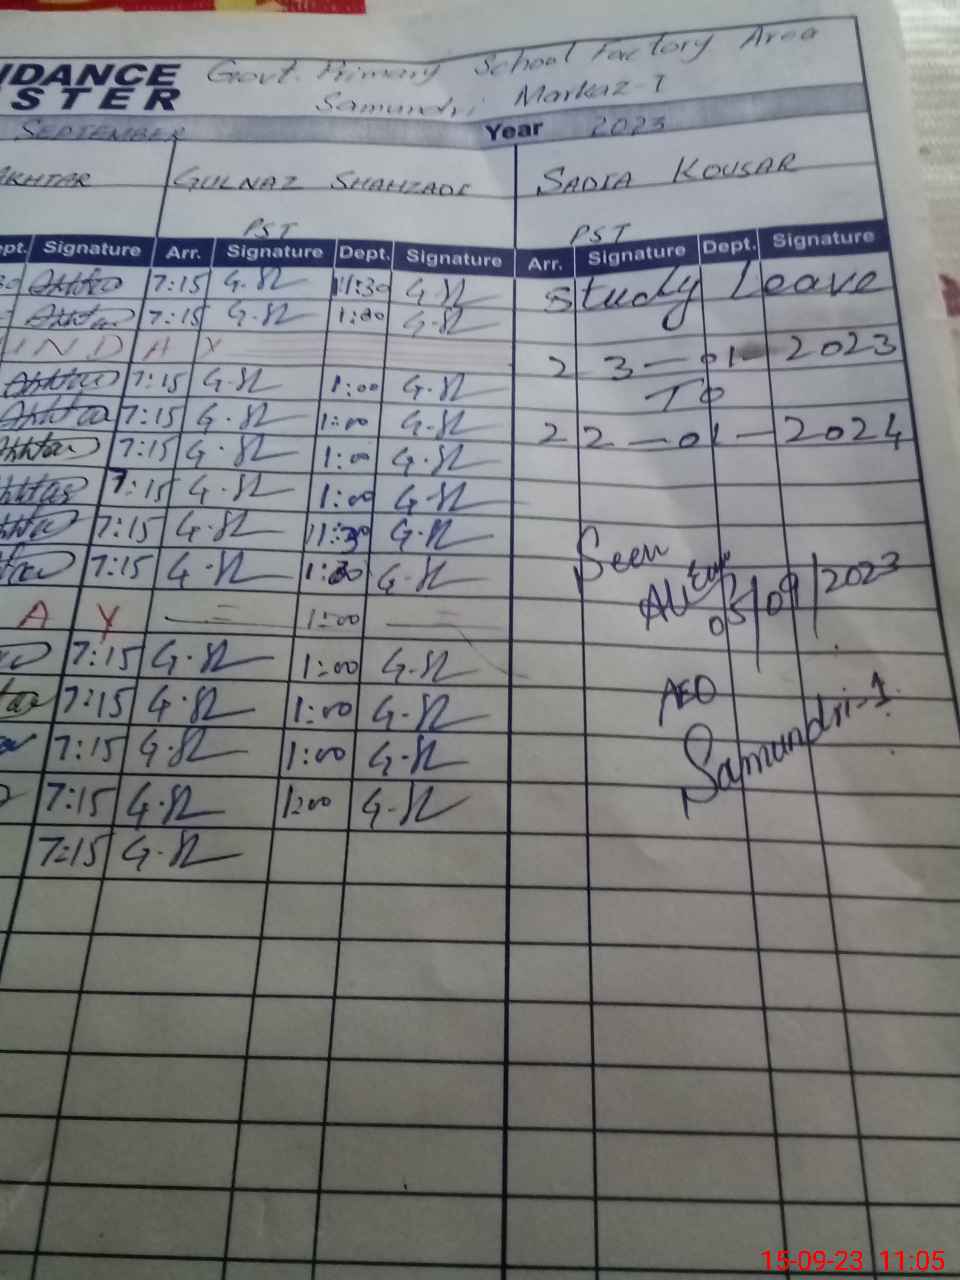 NDANCE Govt. Primary School Factory Area
STER Samundri Markaz-I
SEPTEMBER Year 2023
AKHTAR GULNAZ SHAHZADI SADIA KOUSAR
PST PST
ept. Signature Arr. Signature Dept. Signature Arr. Signature Dept. Signature
7:15 G.S 11:30 G.S Study Leave
7:15 G.S 1:00 G.S
INDAY 23-01-2023
7:15 G.S 1:00 G.S To
7:15 G.S 1:00 G.S 22-01-2024
Akhtar 7:15 G.S 1:00 G.S
7:15 G.S 1:00 G.S
7:15 G.S 11:30 G.S Seen
7:15 G.S G.S 05/09/2023
A Y 1:00
7:15 G.S 1:00 G.S
7:15 G.S 1:00 G.S AEO
7:15 G.S 1:00 G.S Samundri-1
7:15 G.S 1:00 G.S
7:15 G.S
15-09-23 11:05